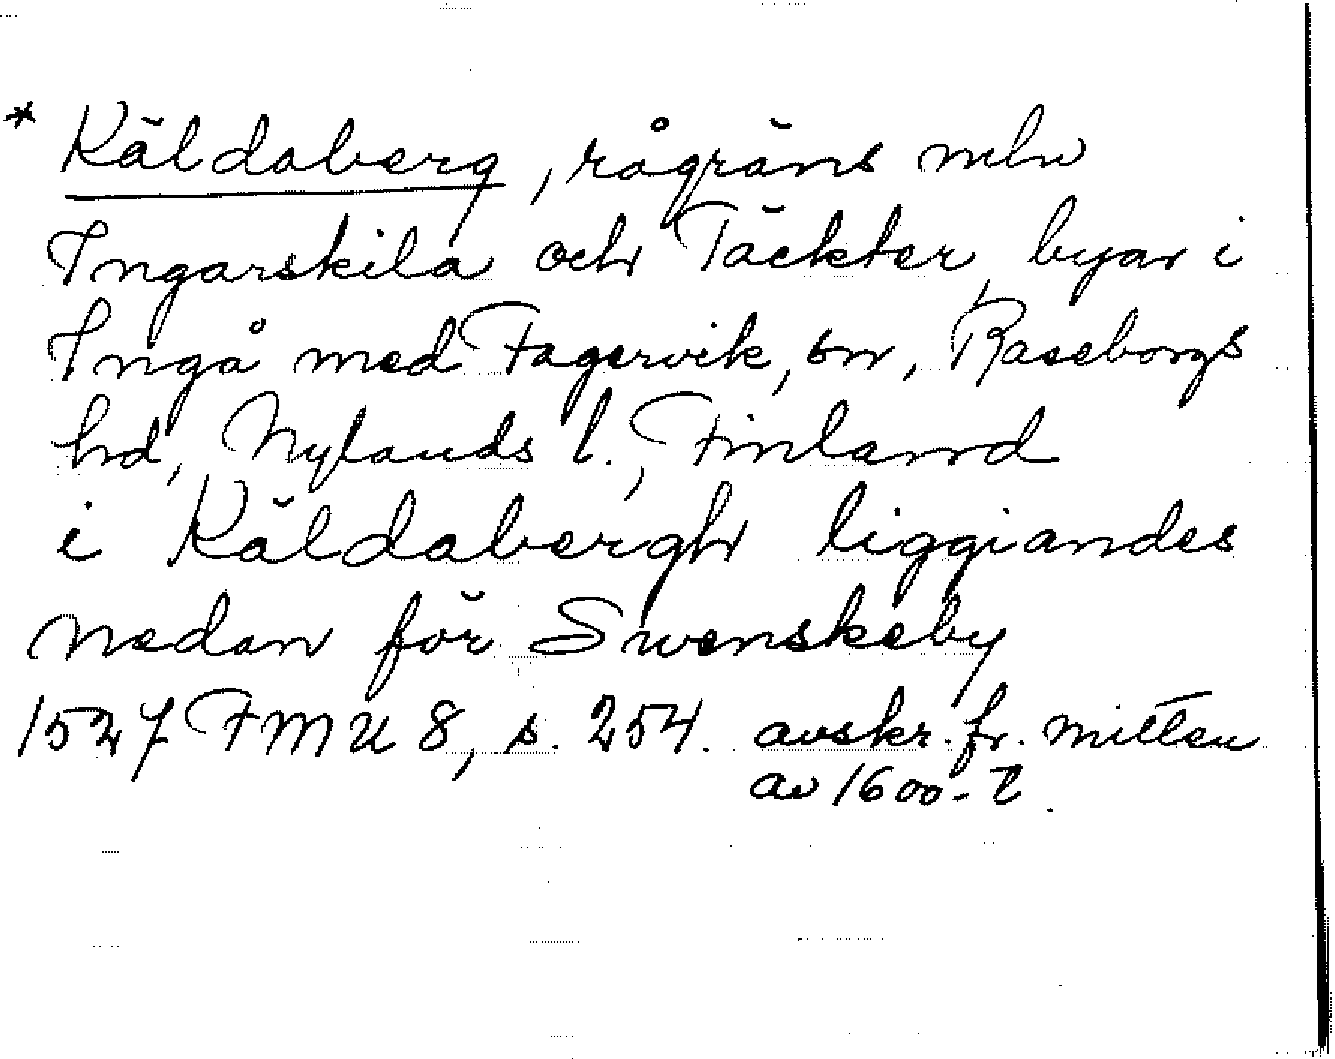 * Käldaberg, rågräns mln
Ingarskila och Täckter, byar i
Ingå med Fagervik, sn, Raseborgs
hd, Nylands l., Finland
i Käldabergh liggiandes
nedan för Swenskeby
1527 FMU 8, s. 254. avskr. fr. mitten
av 1600-t.